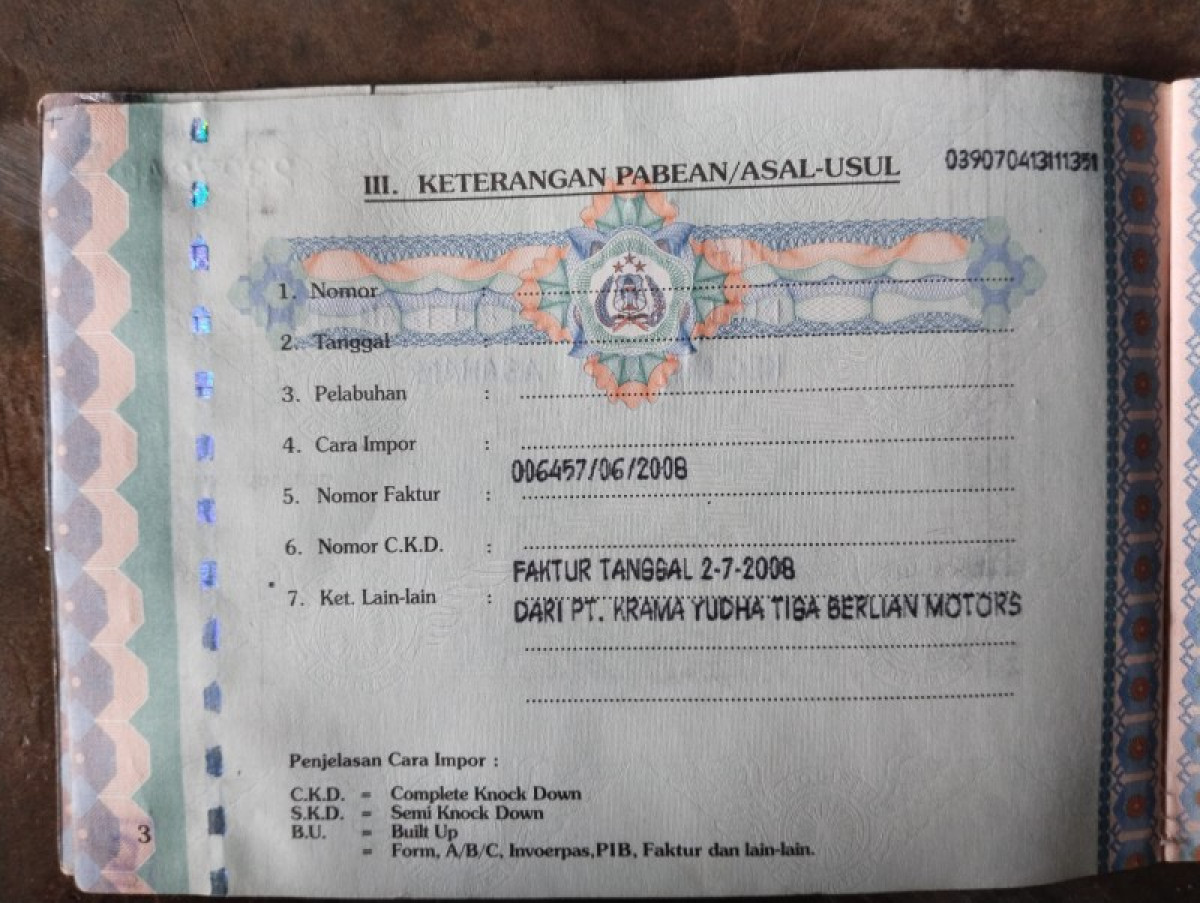 III. KETERANGAN PABEAN/ASAL-USUL
039070413111351
1. Nomor :
2. Tanggal :
3. Pelabuhan :
4. Cara Impor :
006457/06/2008
5. Nomor Faktur :
6. Nomor C.K.D. :
FAKTUR TANGGAL 2-7-2008
7. Ket. Lain-lain :
DARI PT. KRAMA YUDHA TIGA BERLIAN MOTORS
Penjelasan Cara Impor :
C.K.D. = Complete Knock Down
S.K.D. = Semi Knock Down
B.U. = Built Up
= Form, A/B/C, Invoerpas,PIB, Faktur dan lain-lain.
3